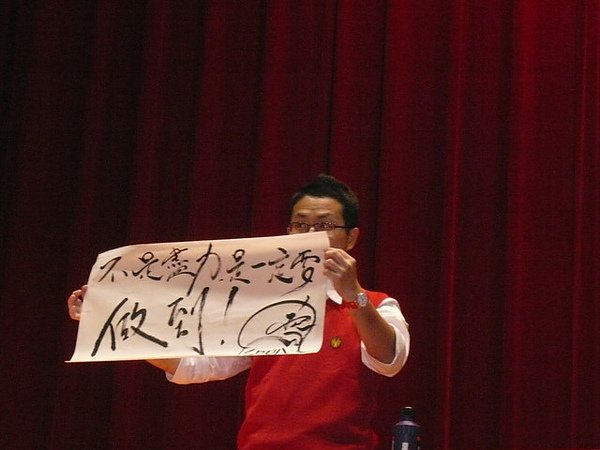 不是盡力是一定要
做到!